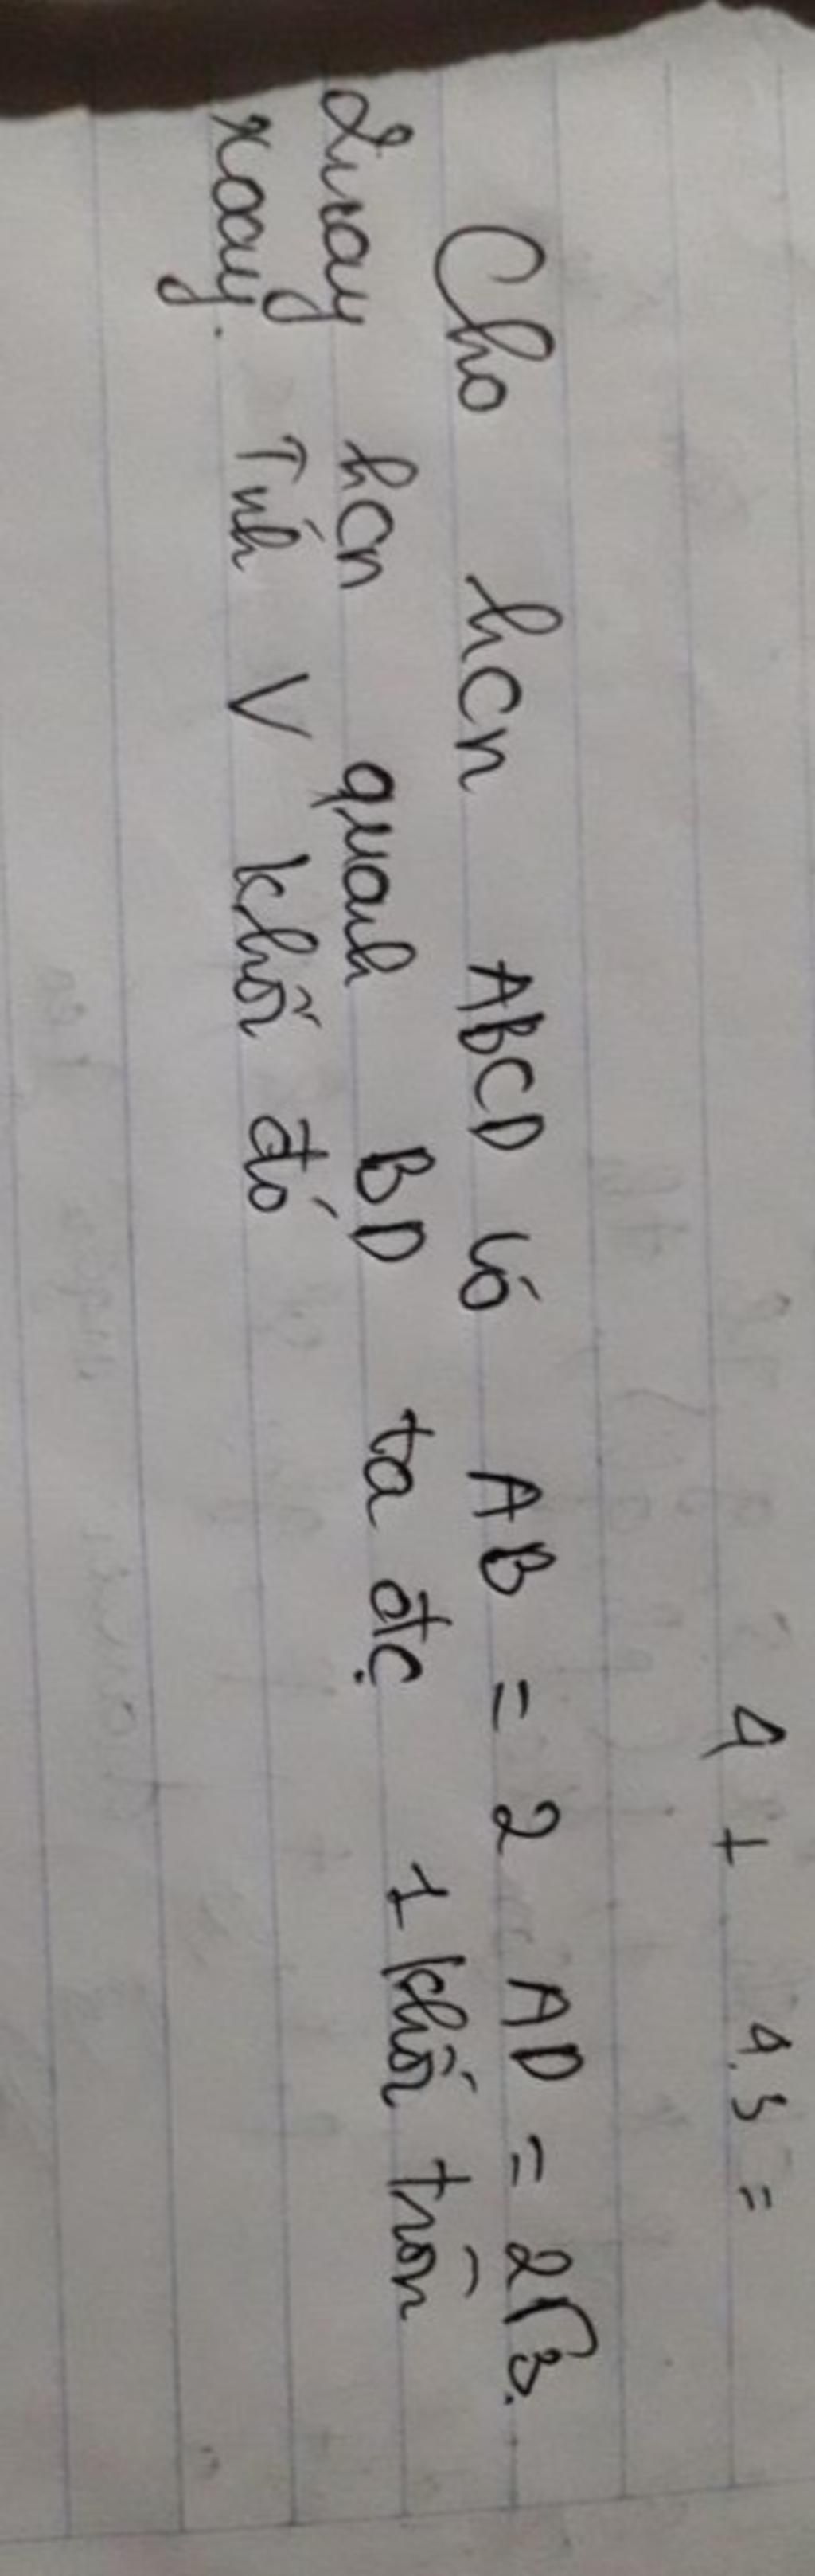 4 + 4.3 =
Cho hcn ABCD có AB = 2 AD = 2√3.
Quay hcn quanh BD ta đc 1 khối tròn
xoay. Tính V khối đó